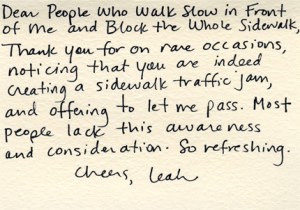 Dear People Who Walk Slow in Front
of me and Block the Whole Sidewalk,
Thank you for on rare occasions,
noticing that you are indeed
creating a sidewalk traffic jam,
and offering to let me pass. Most
people lack this awareness
and consideration. So refreshing.
Cheers, Leah